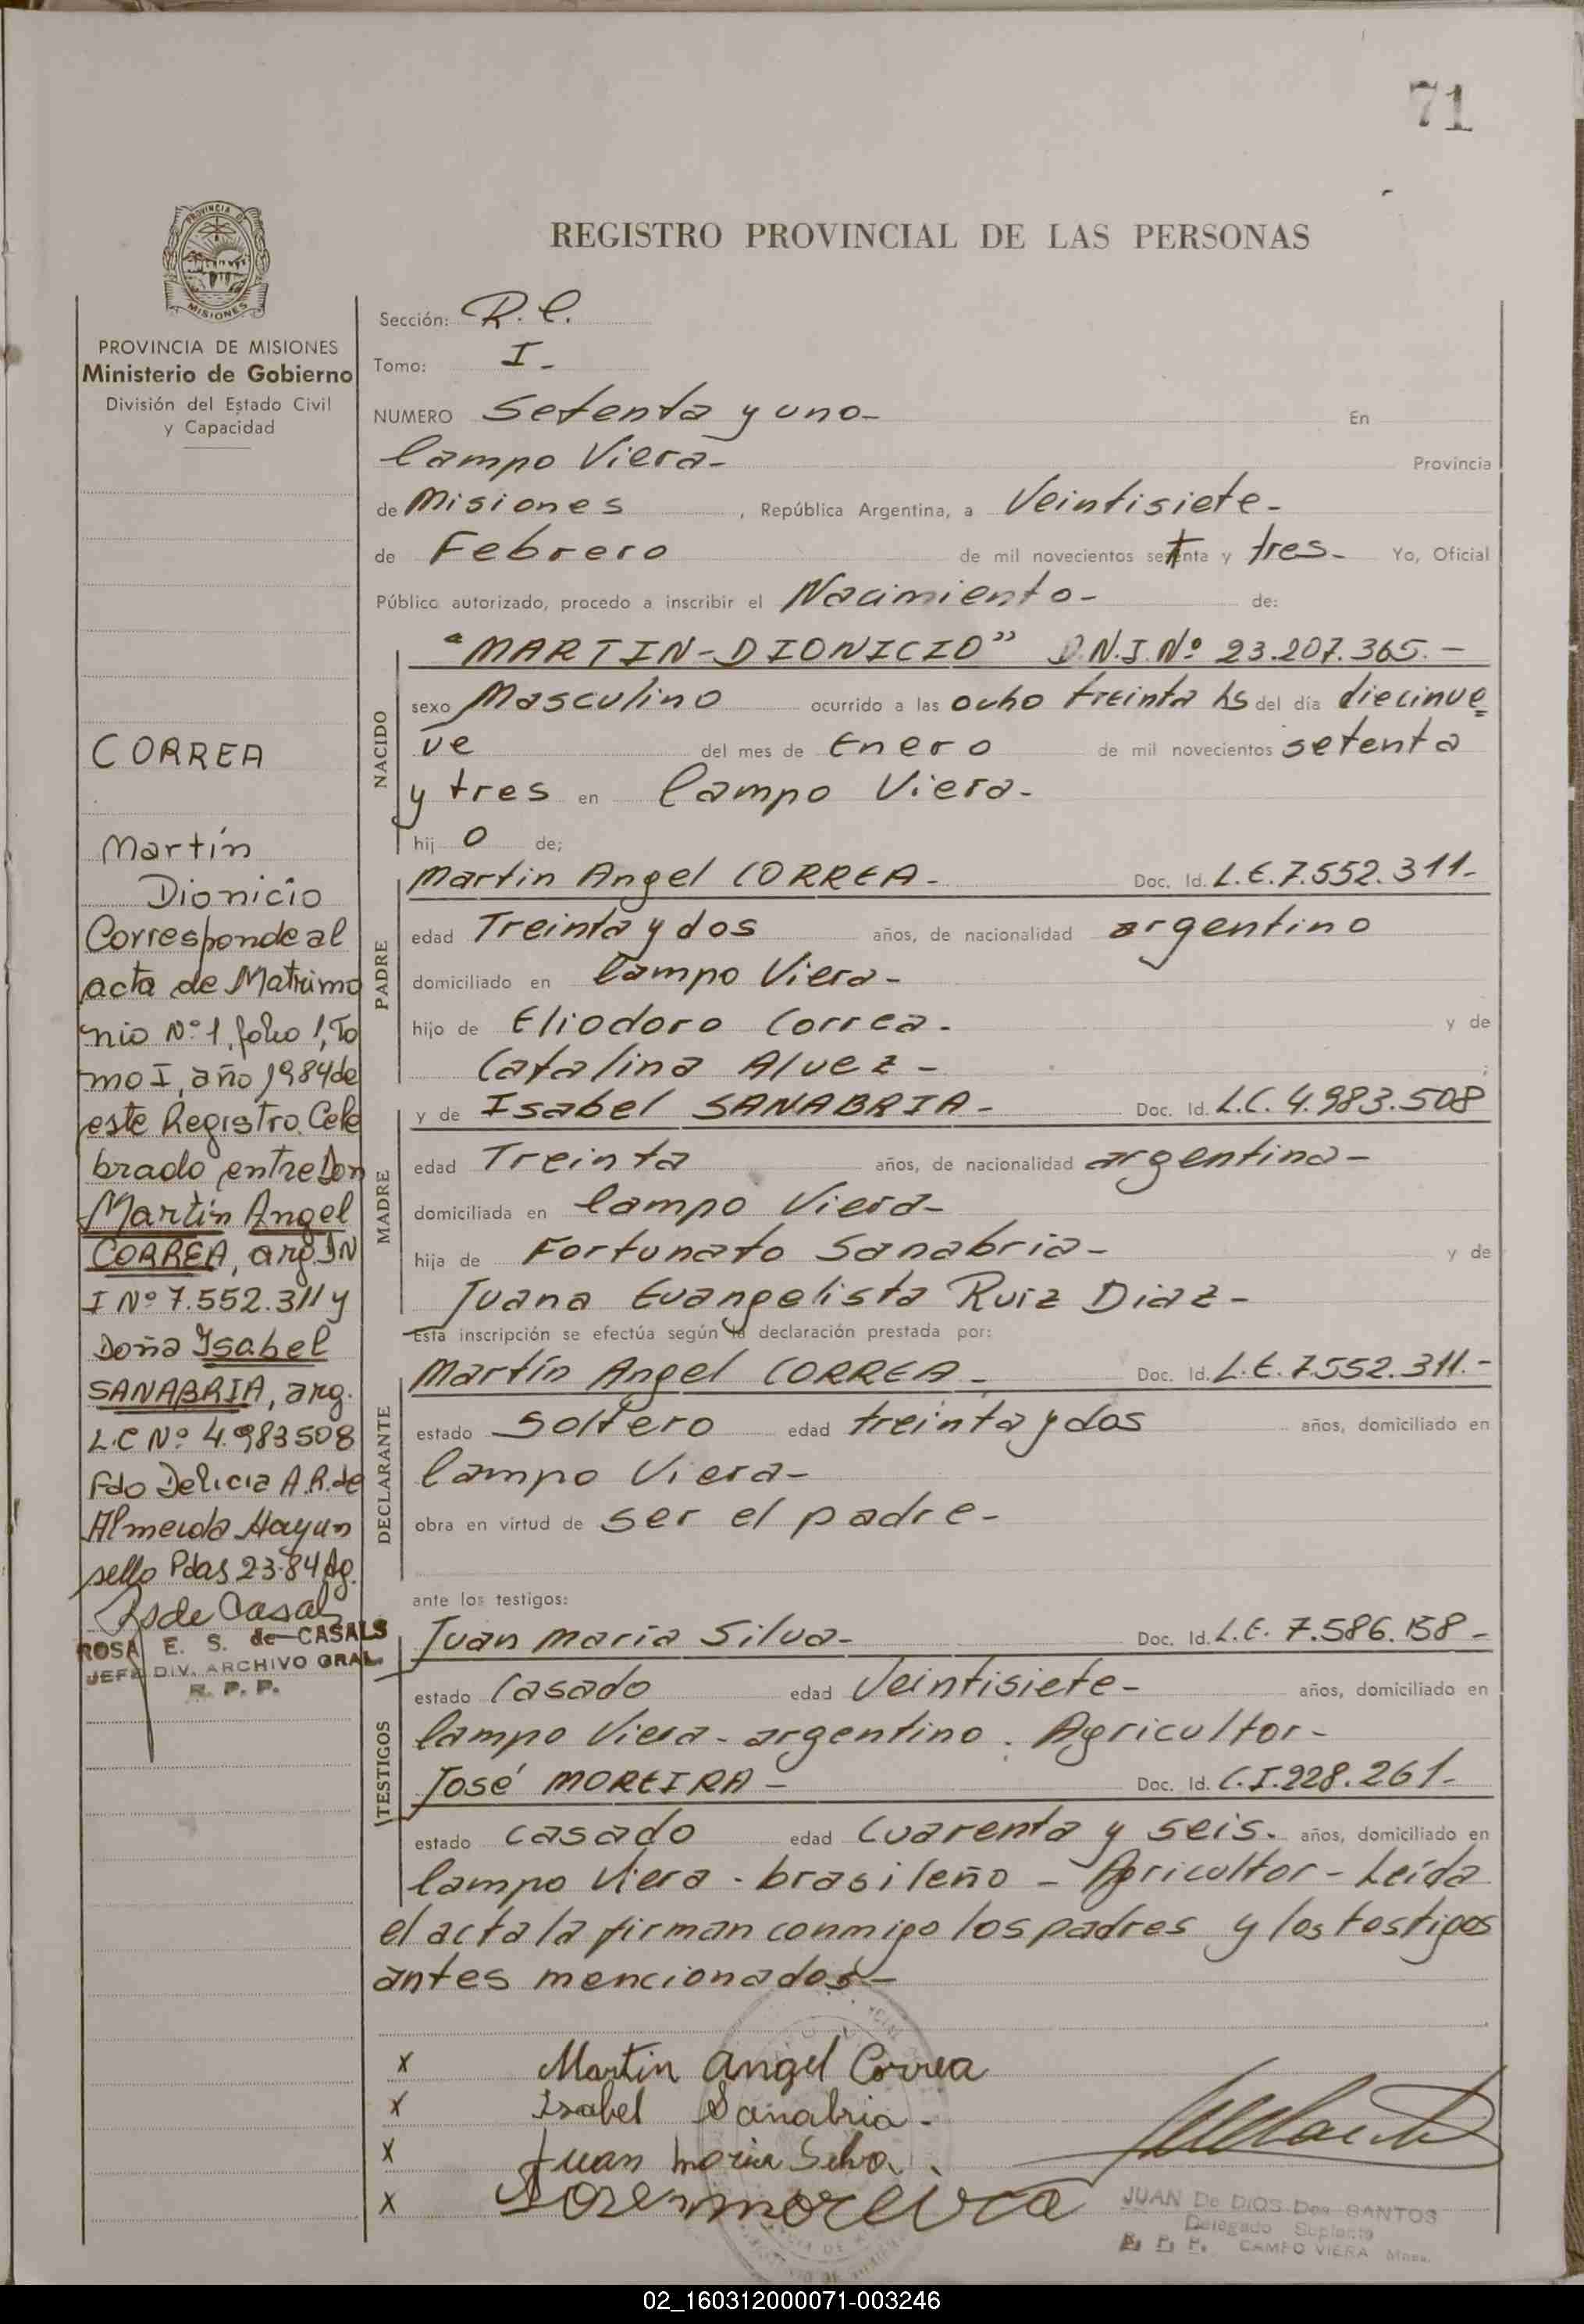 71
PROVINCIA DE
MISIONES
REGISTRO PROVINCIAL DE LAS PERSONAS
PROVINCIA DE MISIONES
Ministerio de Gobierno
División del Estado Civil
y Capacidad
CORREA
Martín
Dionicio
Corresponde al
acta de Matrimo
nio Nº 1, folio 1, To
mo I, año 1984 de
este Registro. Cele
brado entre Don
Martín Angel
CORREA, arg. DN
I Nº 7.552.311 y
Doña Isabel
SANABRIA, arg.
L.C Nº 4.983508
Fdo Delicia A.R. de
Almeida Hay un
sello Pdas 2-3-84
Rs de Casals
ROSA E. S. de CASALS
JEFE DIV. ARCHIVO GRAL.
R. P. P.
Sección: R.C.
Tomo: I -
NUMERO Setenta y uno- En
Campo Viera- Provincia
de Misiones , República Argentina, a Veintisiete-
de Febrero de mil novecientos setenta y tres- Yo, Oficial
Público autorizado, procedo a inscribir el Nacimiento- de:
NACIDO
"MARTIN-DIONICIO" D.N.I. Nº 23.207.365.-
sexo Masculino ocurrido a las ocho treinta hs del día diecinue=
ve del mes de Enero de mil novecientos setenta
y tres en Campo Viera-
hij o de;
PADRE
Martin Angel CORREA- Doc. Id. L.E. 7.552.311-
edad Treinta y dos años, de nacionalidad argentino
domiciliado en Campo Viera-
hijo de Eliodoro Correa- y de
Catalina Alvez - ;
MADRE
y de Isabel SANABRIA- Doc. Id. L.C. 4.983.508
edad Treinta años, de nacionalidad argentina-
domiciliada en Campo Viera-
hija de Fortunato Sanabria- y de
Juana Evangelista Ruiz Diaz-
Esta inscripción se efectúa según la declaración prestada por:
DECLARANTE
Martín Angel CORREA- Doc. Id. L.E. 7.552.311.-
estado Soltero edad treinta y dos años, domiciliado en
Campo Viera-
obra en virtud de ser el padre-
ante los testigos:
TESTIGOS
Juan Maria Silva- Doc. Id. L.E. 7.586.158-
estado Casado edad Veintisiete- años, domiciliado en
Campo Viera- argentino. Agricultor-
José MOREIRA- Doc. Id. C.I. 228.261-
estado casado edad Cuarenta y seis. años, domiciliado en
Campo Viera- brasileño - Agricultor - Leída
el acta la firman conmigo los padres y los testigos
antes mencionados-
x Martin Angel Correa
x Isabel Sanabria-
x Juan Maria Silva.
x Jose moreira
JUAN De DIOS Dos SANTOS
Delegado Suplente
R. P. P. CAMPO VIERA Mnes.
02_160312000071-003246